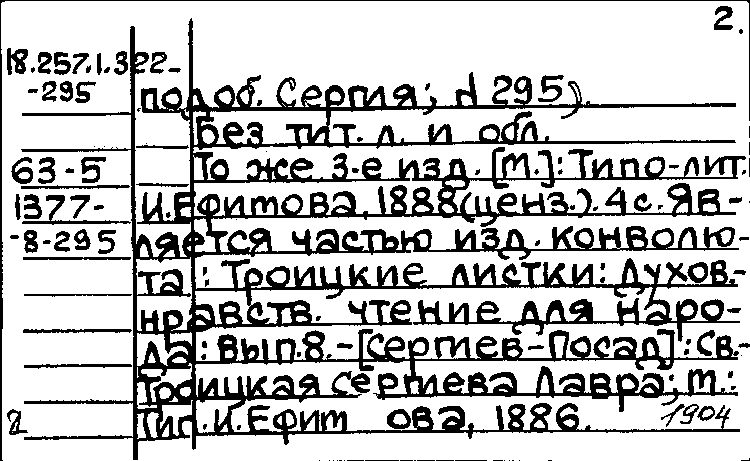 2.
18.257.1.322-
-295
подоб. Сергия; № 295).
Без тит. л. и обл.
63-5
То же 3-е изд. [М.]: Типо-лит.
1377-
И.Ефитова, 1888(ценз.). 4с. Яв-
-8-295
ляется частью изд. конволю-
та: Троицкие листки: Духов.-
нравств. чтение для наро-
да: Вып.8. - [Сергиев-Посад]: Св.-
Троицкая Сергиева Лавра; М.:
2
Тип. И. Ефит ова, 1886.
1904